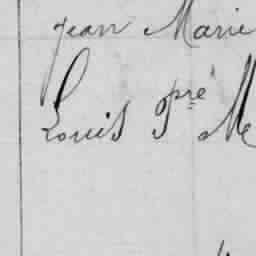 Jean Marie
Louis Pre M